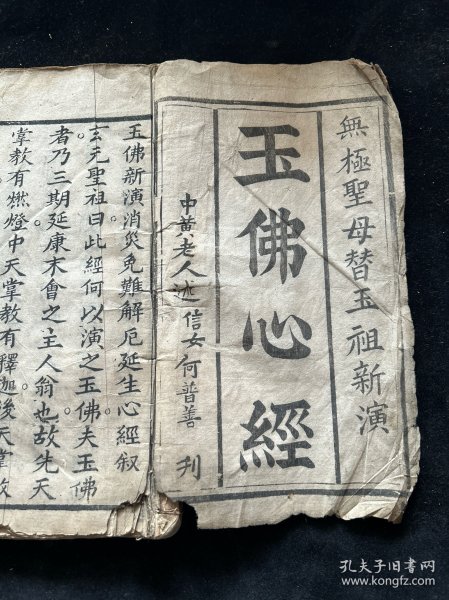 無極聖母替玉祖新演
玉佛心經
中黃老人述信女何普善刊
玉佛新演消災免難解厄延生心經叙
玄元聖祖曰此經何以演之玉佛夫玉佛
者乃三期延康末會之主人翁也故先天
掌教有燃燈中天掌教有釋迦後天掌教
孔夫子旧书网
www.kongfz.com